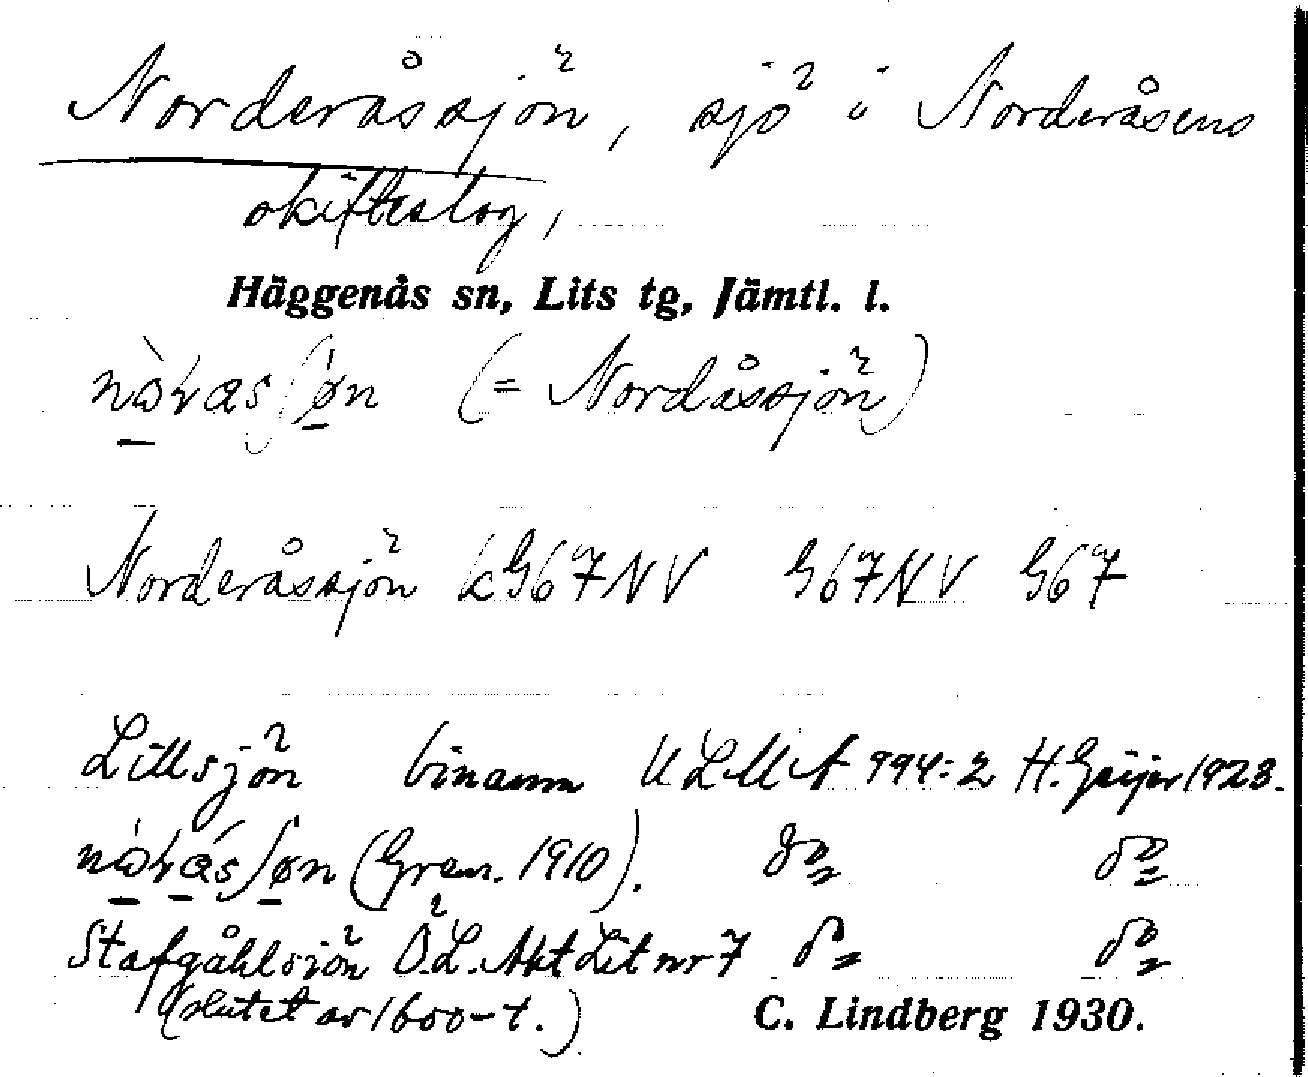 Norderåssjön, sjö i Norderåsens
skifteslag,
Häggenås sn, Lits tg, Jämtl. l.
(= Nordåssjön)
Norderåssjön k G67NV G67NV G67
Littsjön binamn ULMA 994:2 H. Geijer 1923.
(Gran. 1910). do do
Stafgåhlsjön Ö.L. Akt Lit nr 7 do do
(slutet av 1600-t.) C. Lindberg 1930.